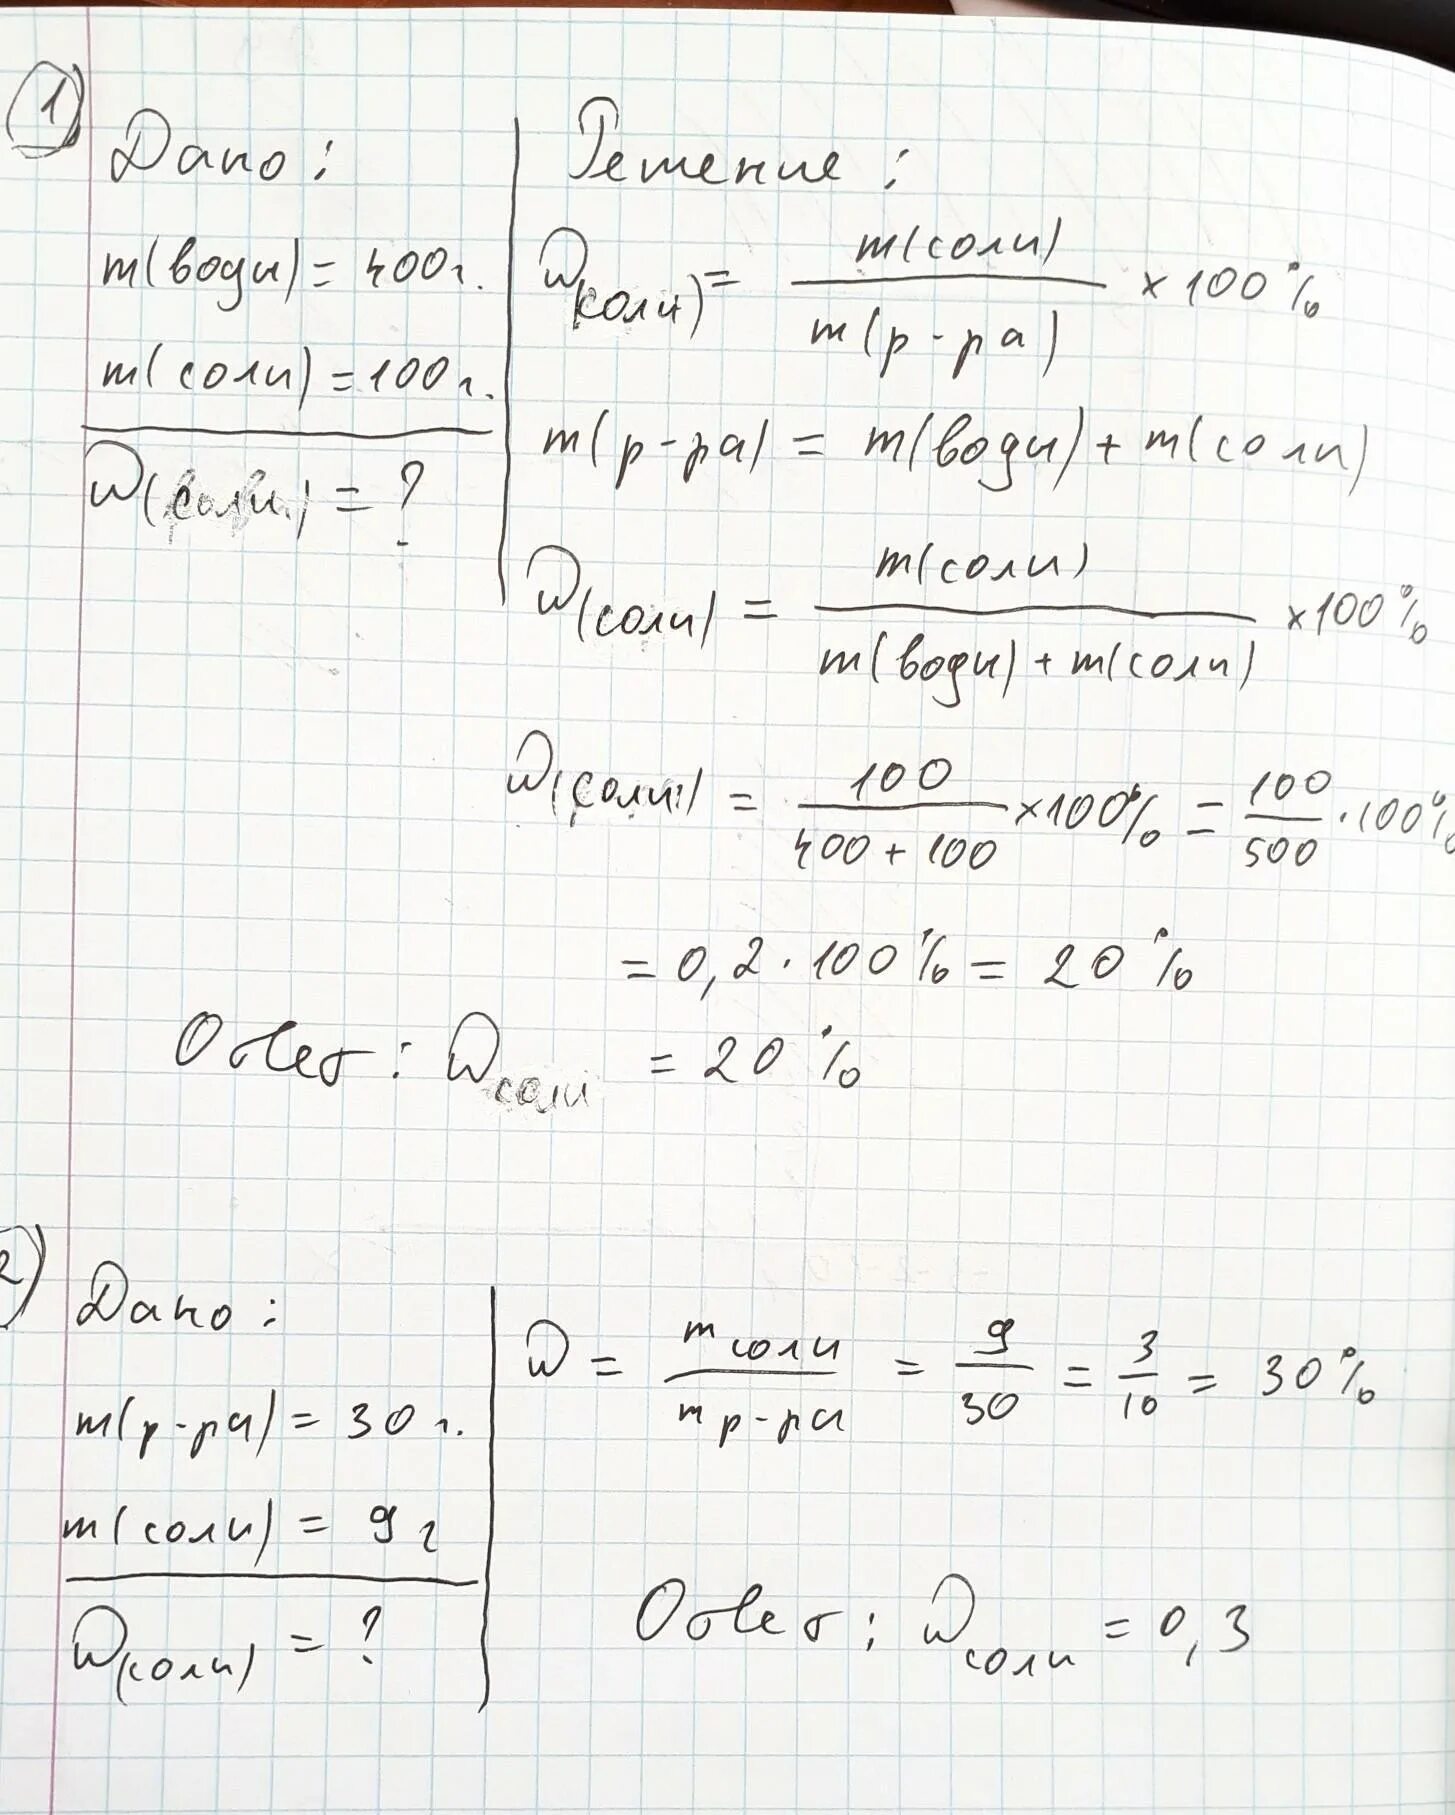 1
Дано:
m(води) = 400г.
m(соли) = 100г.
W(соли) = ?
Решение:
W(соли) = m(соли) / m(р-ра) × 100%
m(р-ра) = m(води) + m(соли)
W(соли) = m(соли) / m(води) + m(соли) × 100%
W(соли) = 100 / 400 + 100 × 100% = 100 / 500 · 100%
= 0,2 · 100% = 20%
Ответ: Wсоли = 20%
2)
Дано:
m(р-ра) = 30г.
m(соли) = 9г
W(соли) = ?
W = mсоли / mр-ра = 9 / 30 = 3 / 10 = 30%
Ответ: Wсоли = 0,3